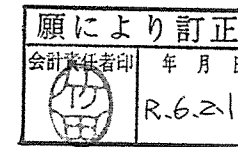 願により訂正
会計責任者印
年 月 日
竹田
R.6.2.1